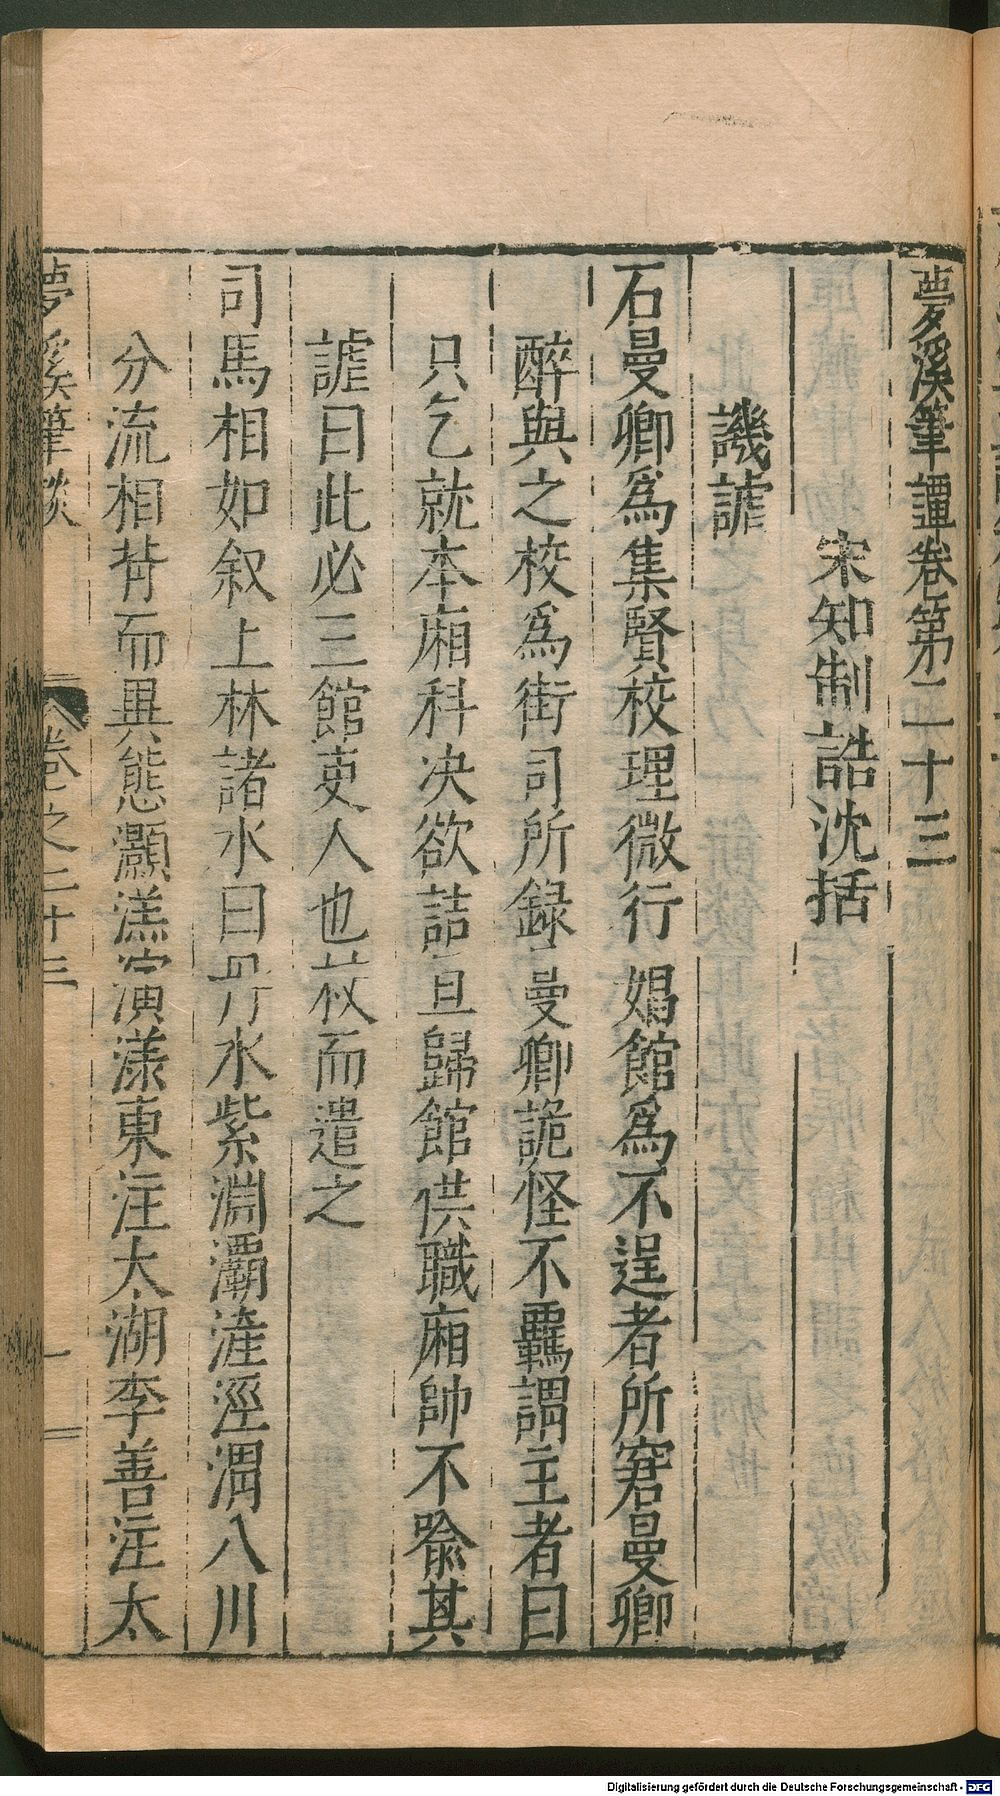 夢溪筆譚卷第二十三
宋知制誥沈括
譏謔
石曼卿爲集賢校理微行娼館爲不逞者所窘曼卿
醉與之校爲街司所錄曼卿詭怪不羈謂主者曰
只乞就本廂科決欲詰旦歸館供職廂帥不喻其
謔曰此必三館吏人也杖而遣之
司馬相如叙上林諸水曰丹水紫淵灞滻涇渭八川
分流相背而異態灝溔潢漾東注太湖李善注太
夢溪筆談 卷之二十三 一
Digitalisierung gefördert durch die Deutsche Forschungsgemeinschaft - DFG